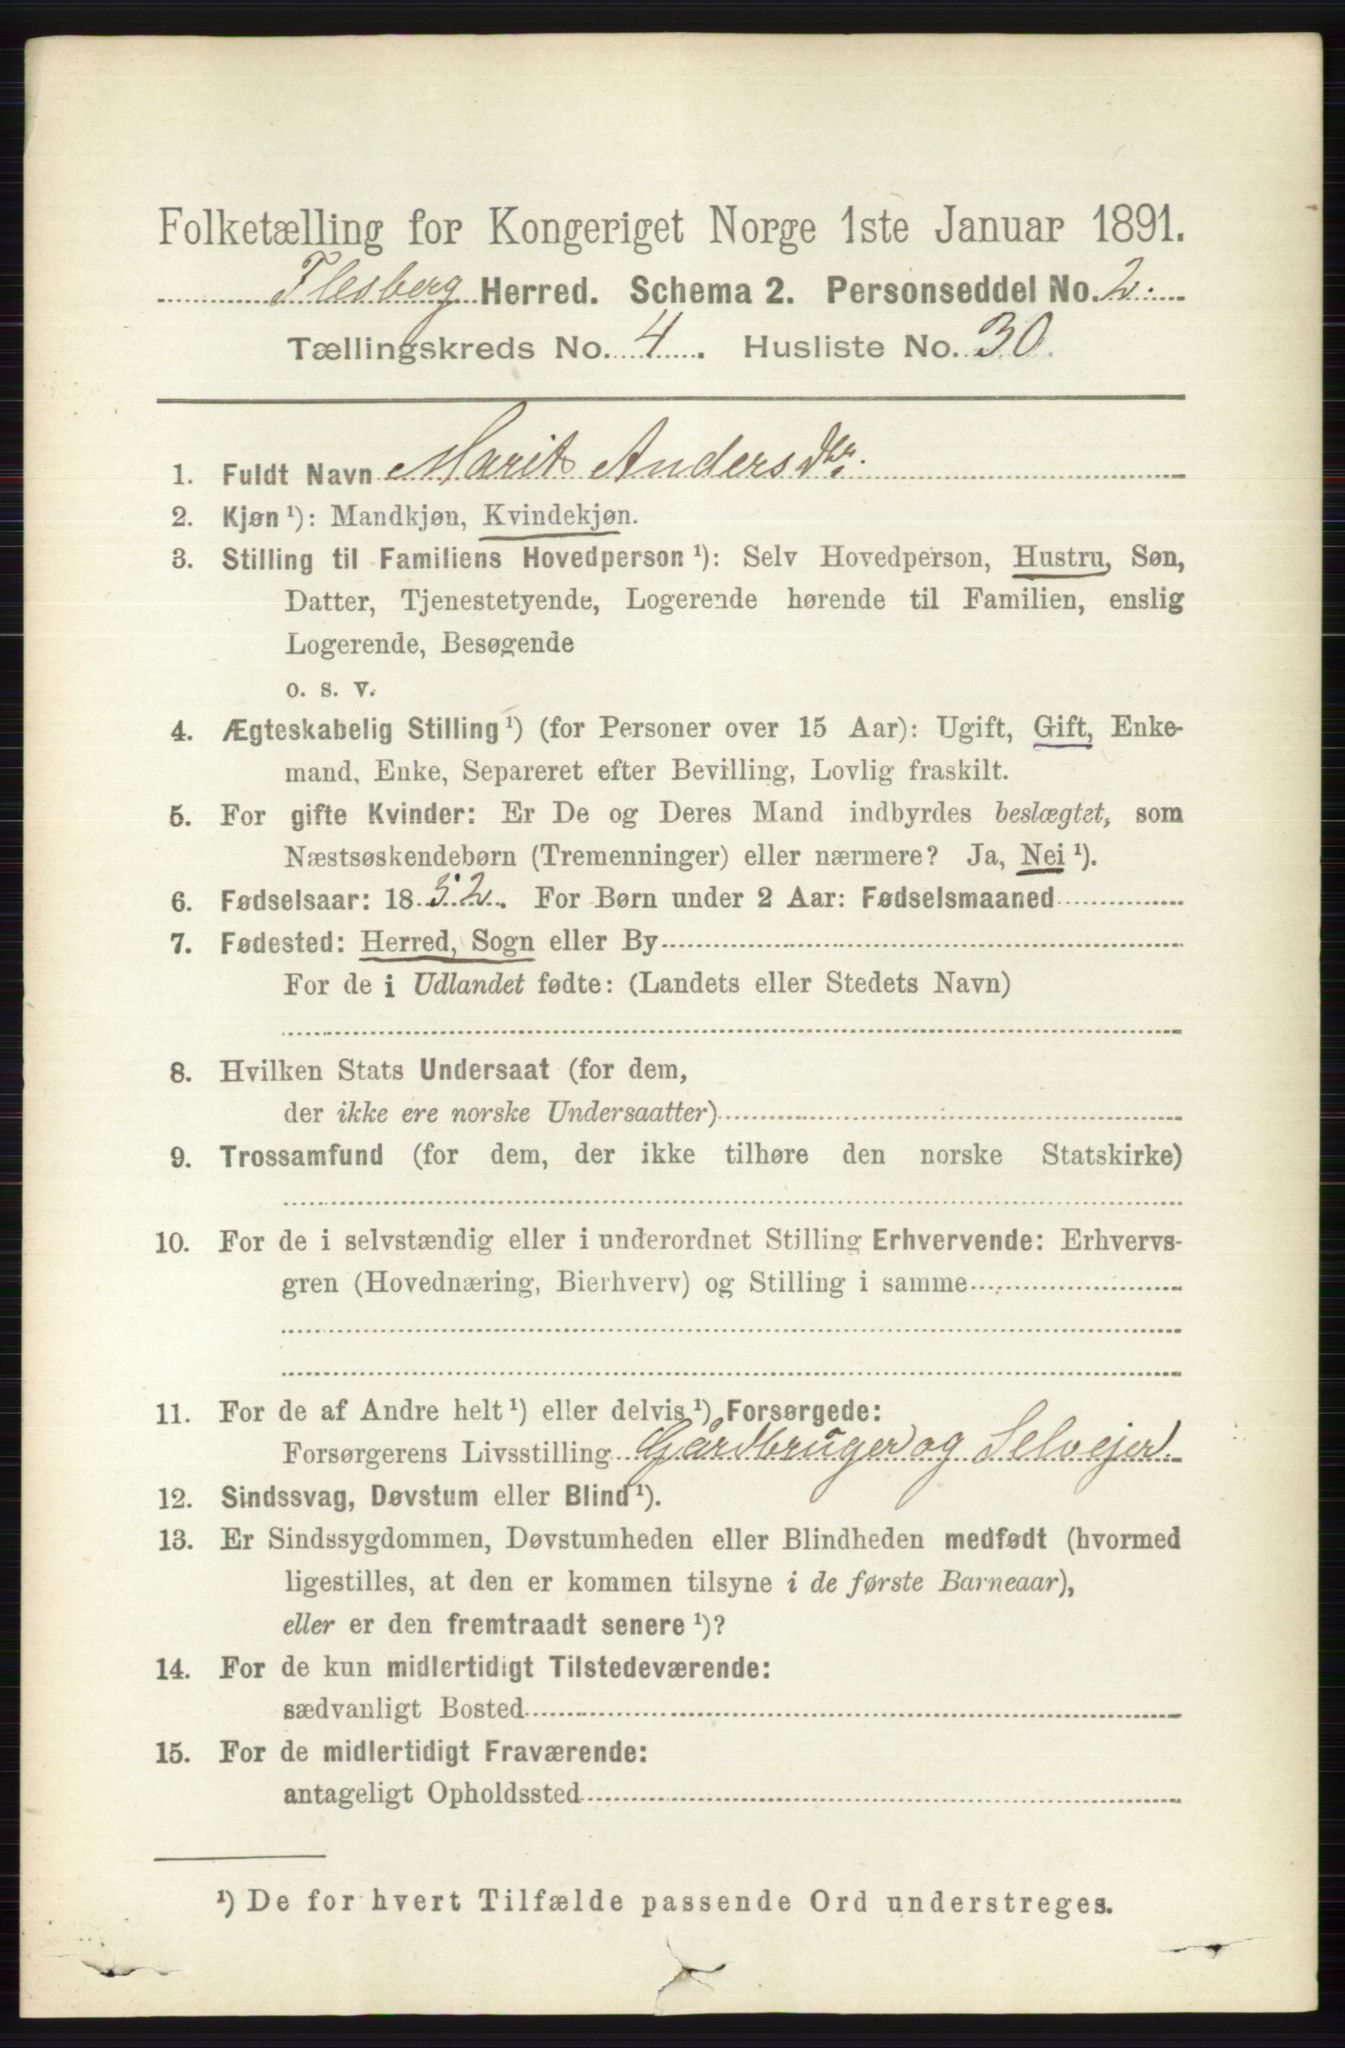 Folketælling for Kongeriget Norge 1ste Januar 1891.
Flesberg Herred. Schema 2. Personseddel No. 2.
Tællingskreds No. 4. Husliste No. 30.
1. Fuldt Navn Marit Andersdtr.
2. Kjøn ¹): Mandkjøn, Kvindekjøn.
3. Stilling til Familiens Hovedperson ¹): Selv Hovedperson, Hustru, Søn,
Datter, Tjenestetyende, Logerende hørende til Familien, enslig
Logerende, Besøgende
o. s. v.
4. Ægteskabelig Stilling ¹) (for Personer over 15 Aar): Ugift, Gift, Enke-
mand, Enke, Separeret efter Bevilling, Lovlig fraskilt.
5. For gifte Kvinder: Er De og Deres Mand indbyrdes beslægtet, som
Næstsøskendebørn (Tremenninger) eller nærmere? Ja, Nei ¹).
6. Fødselsaar: 1832. For Børn under 2 Aar: Fødselsmaaned
7. Fødested: Herred, Sogn eller By
For de i Udlandet fødte: (Landets eller Stedets Navn)
8. Hvilken Stats Undersaat (for dem,
der ikke ere norske Undersaatter)
9. Trossamfund (for dem, der ikke tilhøre den norske Statskirke)
10. For de i selvstændig eller i underordnet Stilling Erhvervende: Erhvervs-
gren (Hovednæring, Bierhverv) og Stilling i samme
11. For de af Andre helt ¹) eller delvis ¹) Forsørgede:
Forsørgerens Livsstilling Gårdbruger og Selvejer
12. Sindssvag, Døvstum eller Blind ¹).
13. Er Sindssygdommen, Døvstumheden eller Blindheden medfødt (hvormed
ligestilles, at den er kommen tilsyne i de første Barneaar),
eller er den fremtraadt senere ¹)?
14. For de kun midlertidigt Tilstedeværende:
sædvanligt Bosted
15. For de midlertidigt Fraværende:
antageligt Opholdssted
¹) De for hvert Tilfælde passende Ord understreges.